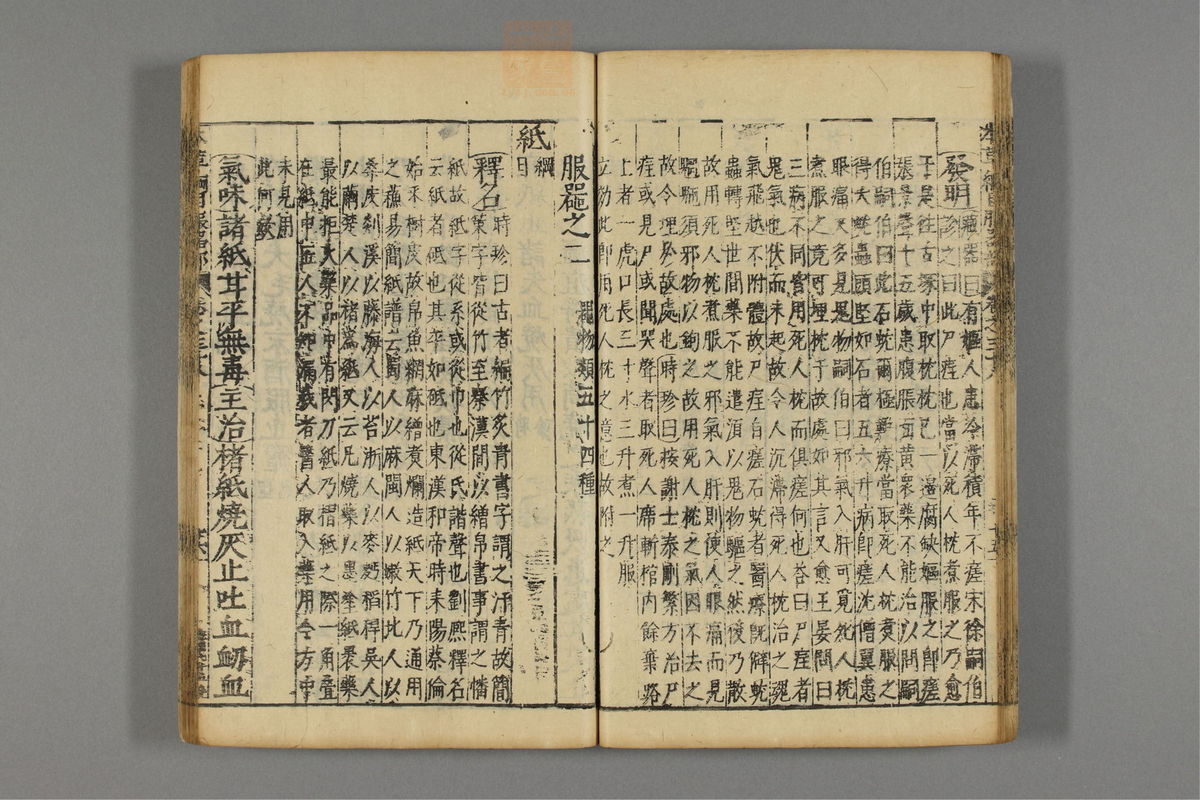 發明藏器曰有嫗人患冷滯積年不瘥宋徐嗣伯
診之曰此尸疰也當以死人枕煮服之乃愈
于是往古塚中取枕枕已一邊腐缺嫗服之即瘥
張景聲十五歲患腹脹面黃衆藥不能治以問嗣
伯嗣伯曰此石蚘爾極難療當取死人枕煮服之
得大蚘蟲頭堅如石者五六升病即瘥沈僧翼患
眼痛又多見鬼物嗣伯曰邪氣入肝可覓死人枕
煮服之竟可埋枕于故處如其言又愈王晏問曰
三病不同皆用死人枕而俱瘥何也荅曰尸疰者
鬼氣也伏而未起故令人沉滯得死人枕治之魂
氣飛越不附體故尸疰自瘥石蚘者醫療旣僻蚘
蟲轉堅世間藥不能遣須以鬼物驅之然後乃散
故用死人枕煮服之邪氣入肝則使人眼痛而見
魍魎須邪物以鉤之故用死人枕之氣因不去之
故令埋於故處也時珍曰按謝士泰刪繁方治尸
疰或見尸或聞哭聲者取死人席斬棺內餘棄路
上者一虎口長三寸水三升煮一升服
立効此即用死人枕之意也故附之
服器之二器物類五十四種
紙綱目
釋名時珍曰古者編竹炙青書字謂之汗青故簡
策字皆從竹至秦漢間以繒帛書事謂之幡
紙故紙字從糸或從巾也從氏諧聲也劉熙釋名
云紙者砥也其平如砥也東漢和帝時耒陽蔡倫
始采樹皮故帛魚網麻繒煮爛造紙天下乃通用
之蘇易簡紙譜云蜀人以麻閩人以嫩竹北人以
桑皮剡溪以藤海人以苔浙人以麥䴬稻稈吳人
以繭楚人以楮爲紙又云凡燒藥以墨塗紙裹藥
最能拒火藥品中有閃刀紙乃摺紙之際一角疊
在紙中匠人不知漏裁者醫人取入藥用今方中
未見用
此何歟
氣味諸紙甘平無毒主治楮紙燒灰止吐血衂血